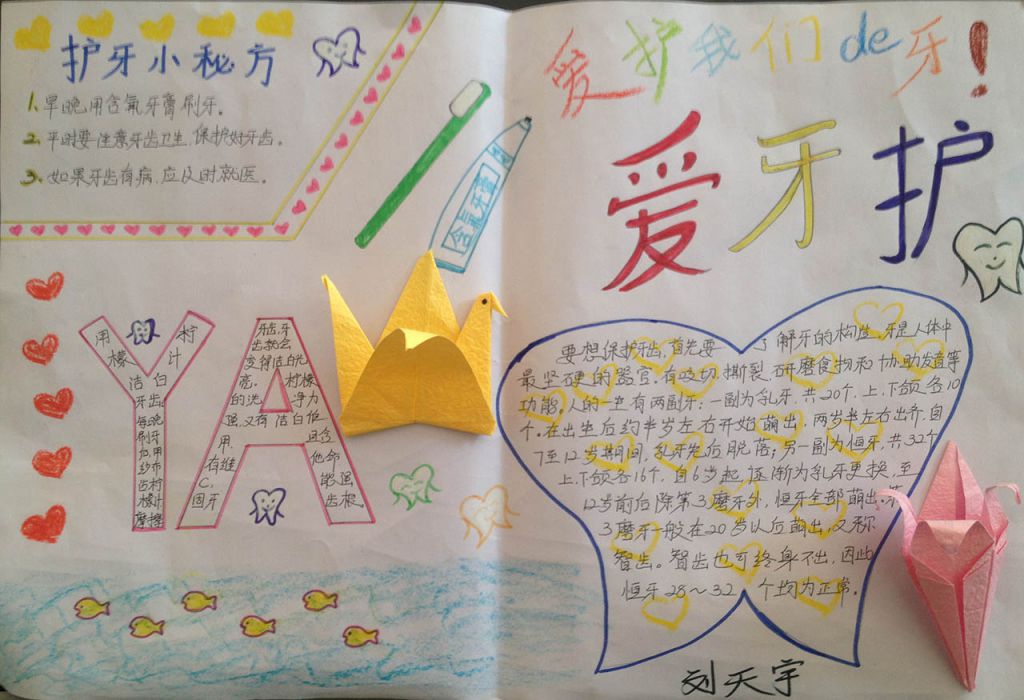 护牙小秘方
1.早晚用含氟牙膏刷牙。
2.平时要注意牙齿卫生,保护好牙齿。
3.如果牙齿有病,应及时就医。
含氟牙膏
YA
用柠
檬汁
洁白
牙齿。
每晚
刷牙
后,用
纱布
占柠
檬汁
摩擦
牙齿,牙
齿就会
变得洁白光
亮。柠檬
的洗净力
强,又有洁白作
用,且含
有维他命
C,能强
固牙齿根。
爱护我们de牙!
爱牙护
要想保护牙齿,首先要了解牙的构造,牙是人体中
最坚硬的器官,有咬切、撕裂、研磨食物和协助发音等
功能。人的一生有两副牙:一副为乳牙,共20个,上、下颌各10
个。在出生后约半岁左右开始萌出,两岁半左右出齐,自
7至12岁其间,乳牙先后脱落;另一副为恒牙,共32个
上、下颌各16个,自6岁起,逐渐为乳牙更换,至
12岁前后除第3磨牙外,恒牙全部萌出,第
3磨牙一般在20岁以后萌出,又称
智齿。智齿也可终身不出,因此
恒牙28~32个均为正常。
刘天宇